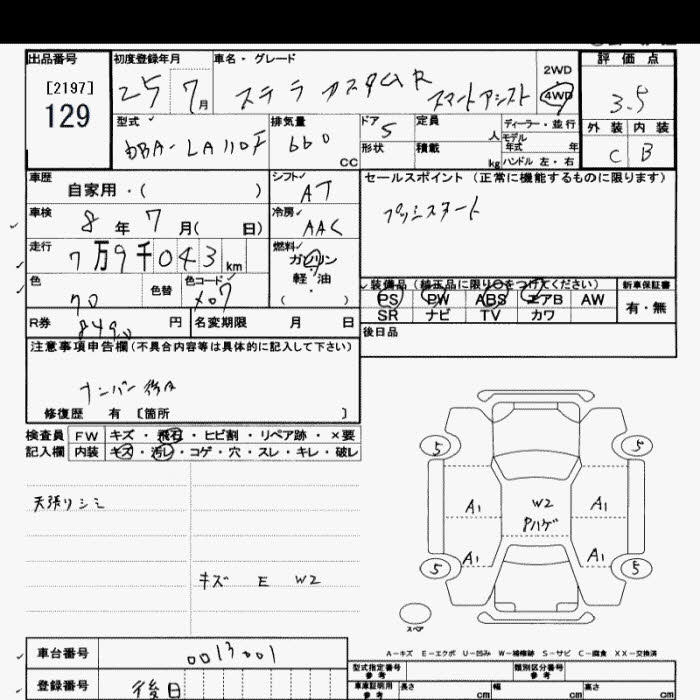 出品番号 初度登録年月 車名・グレード 評価点
[2197]
129
25 7月 ステラ カスタムR スマートアシスト 2WD 4WD 3.5
外装 内装
C B
型式 排気量 ドア 定員 人 ディーラー・並行
DBA-LA110F 660 CC 5 形状 積載 kg モデル年式 年
ハンドル 左・右
車歴 シフト セールスポイント(正常に機能するものに限ります)
自家用・( ) AT プッシュスタート
車検 冷房
8年 7月( 日) AAC
走行 燃料
7万9千043km ガソリン
軽・油
色 色替 色コード 装備品(純正品に限り○をつけてください) 新車保証書
X07 PS PW ABS エアB AW 有・無
R券 8490円 名変期限 月 日 SR ナビ TV カワ
後日品
注意事項申告欄(不具合内容等は具体的に記入して下さい)
ナンバー後日
修復歴 有 〔箇所 〕
検査員 FW キズ・飛石・ヒビ割・リペア跡・×要
記入欄 内装 キズ・汚レ・コゲ・穴・スレ・キレ・破レ
天張りシミ
キズ E W2
5 5
A1 W2 A1
Pハゲ
A1 A1
5 5
スペア
A-キズ E-エクボ U-凹み W-補修跡 S-サビ C-腐食 XX-交換済
車台番号 0013001 型式指定番号 参考 類別区分番号 参考
登録番号 後日 車庫証明用 参考 長さ cm 幅 cm 高さ cm